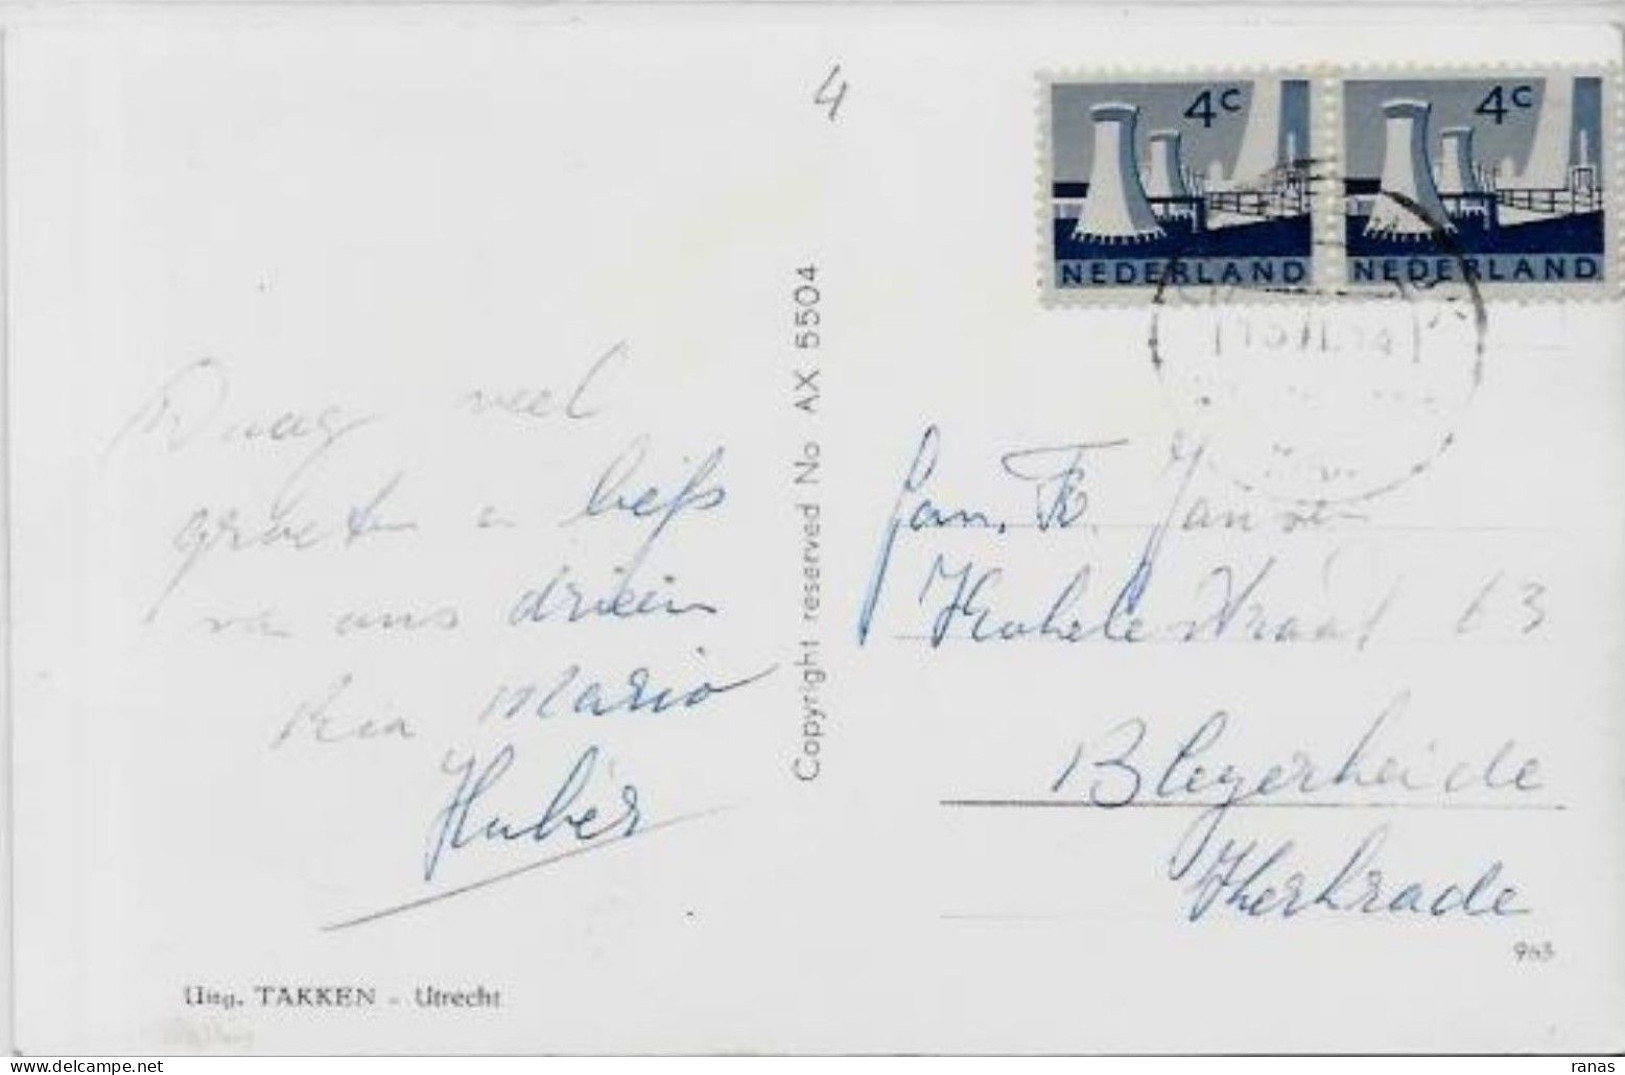 4
4c 4c
NEDERLAND NEDERLAND
Daag veel
groeten en liefs
van ons drieën
Ria Mario
Huber
Copyright reserved No AX 5504
Fam. Th. Jansen
straat 63
Bleyerheide
Kerkrade
963
Uitg. TAKKEN - Utrecht
ranas